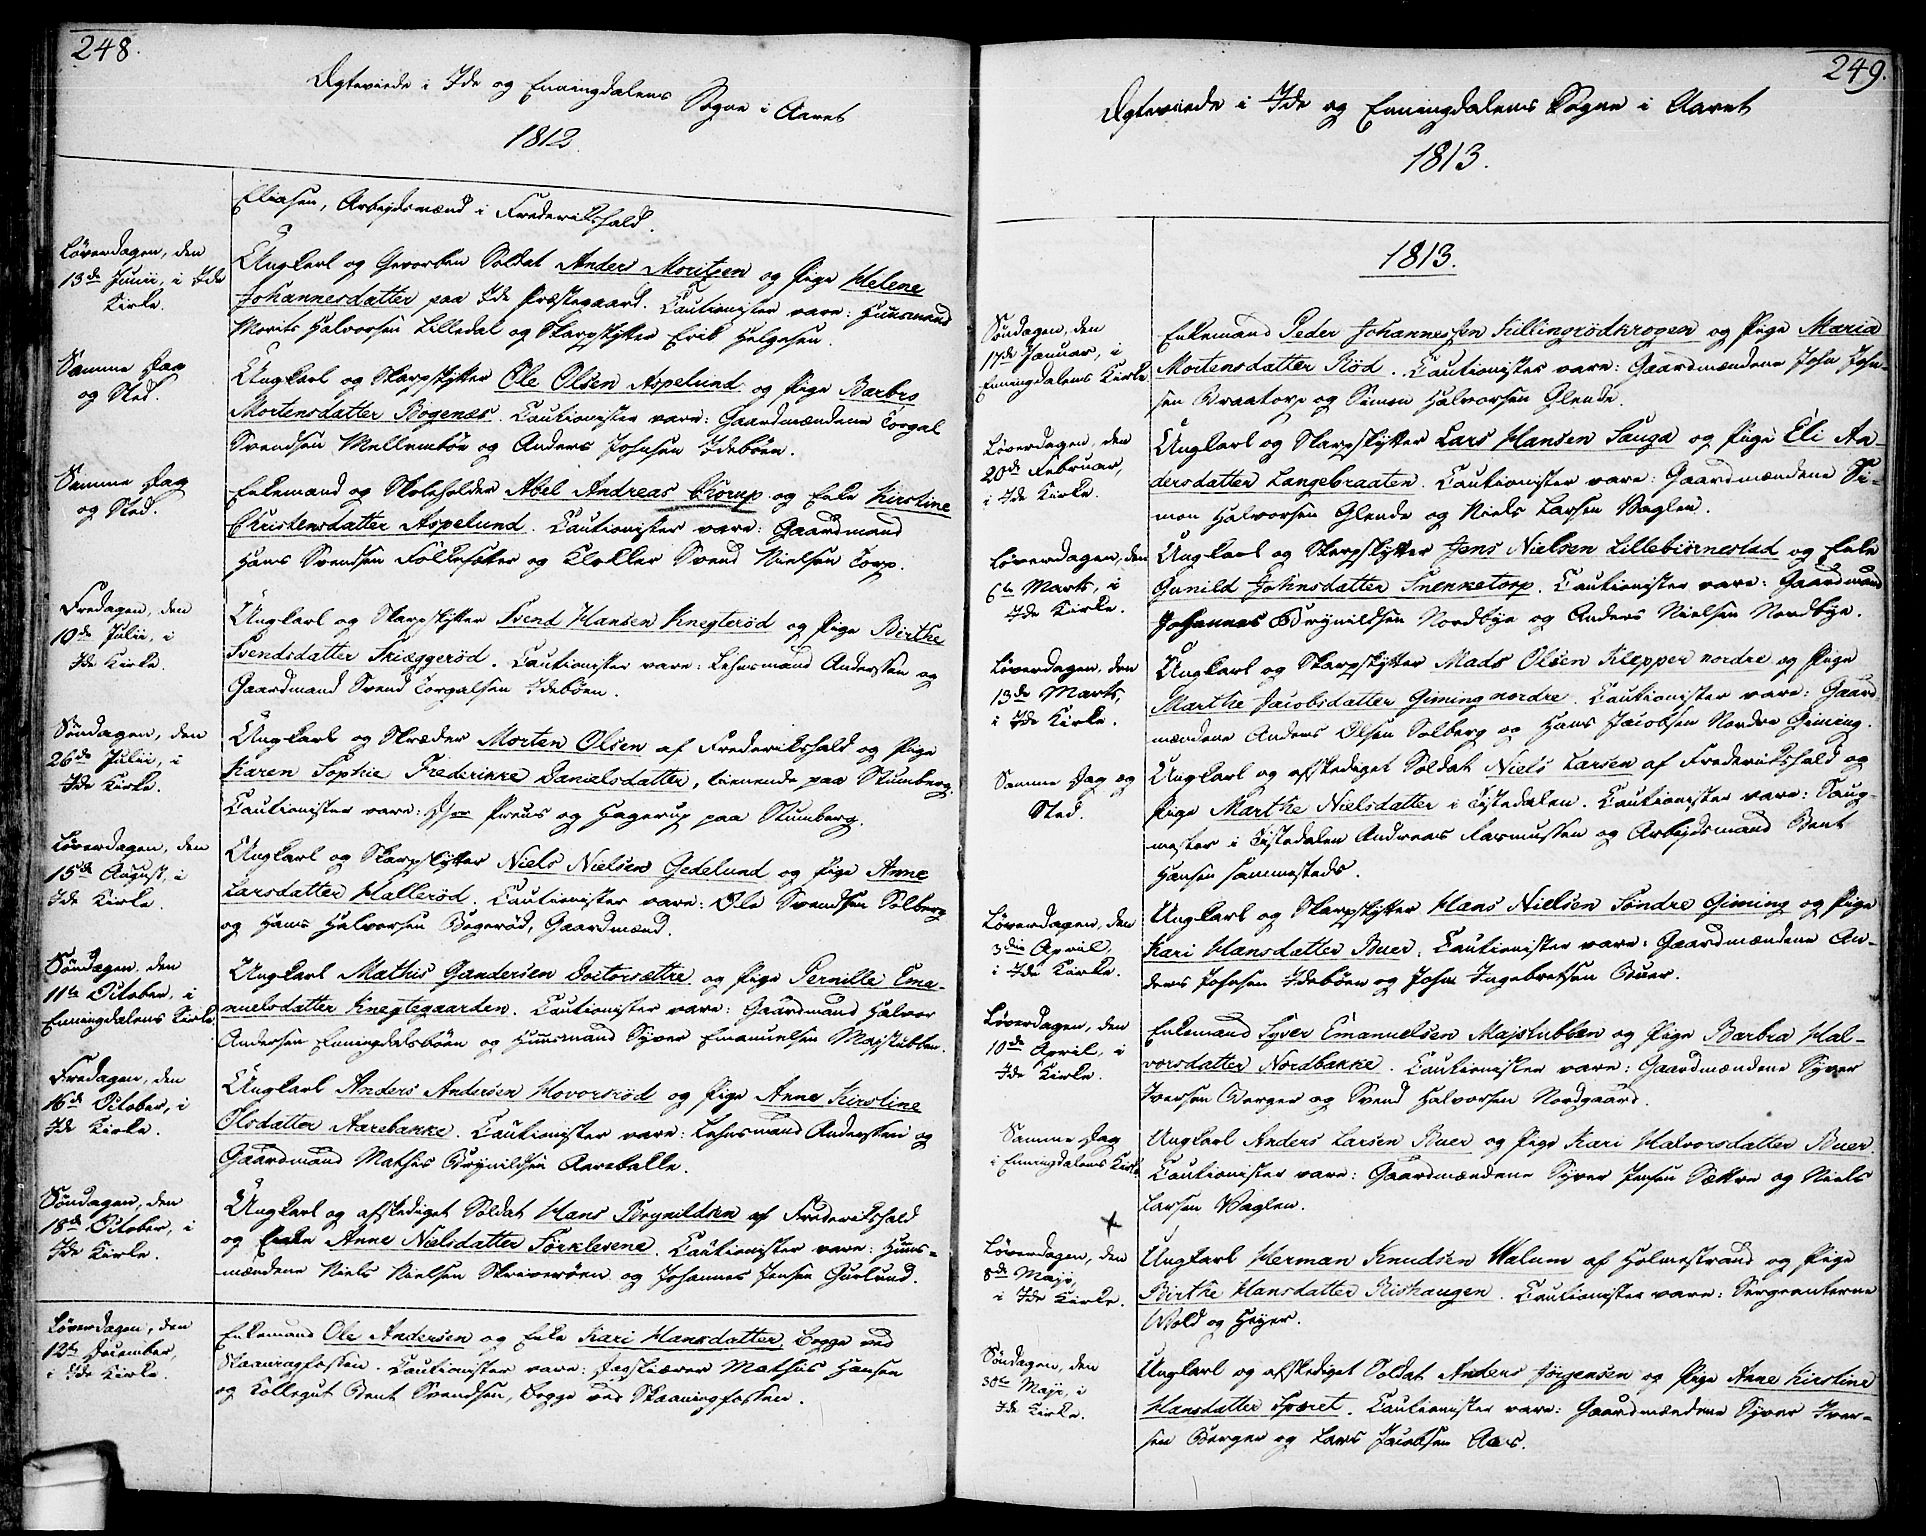 248.
Ægteviede i Ide og Enningdalens Sogne i Aaret
1812.
Eliasen, Arbejdsmænd i Frederikshald.
Løverdagen, den
13de Junii, i Ide
Kirke.
Ungkarl og Geworben Soldat Anders Moritzen og Pige Helene
Johannesdatter paa Ide Præstegaard. Cautionister vare: Huusmand
Morits Halvorsen Lilledal og Skarpskytter Erik Helgesen.
Samme Dag
og Sted.
Ungkarl og Skarpskytter Ole Olsen Aspelund og Pige Barbro
Mortensdatter Bogenæs. Cautionister vare: Gaardmændene Torgal
Svendsen Mellembøe og Anders Johnsen Idebøen.
Samme Dag
og Sted.
Enkemand og Skoleholder Abel Andreas Crorup og Enke Kirstine
Christensdatter Aspelund. Cautionister vare: Gaardmand
Hans Svendsen Folkesøker og Klokker Svend Nielsen Torp.
Fredagen, den
10de Julii, i
Ide Kirke.
Ungkarl og Skarpskytter Svend Hansen Knegterød og Pige Birthe
Svendsdatter Skiæggerød. Cautionister vare: Lehnsmand Anderssen og
Gaardmand Svend Torgalsen Idebøen.
Søndagen, den
26de Julii, i
Ide Kirke.
Ungkarl og Skræder Morten Olsen af Frederikshald og Pige
Karen Sophie Frederikke Danielsdatter, tienende paa Stumberg.
Cautionister vare: Preus og Hagerup paa Stumberg.
Løverdagen, den
15de August, i
Ide Kirke.
Ungkarl og Skarpskytter Niels Nielsen Gedelund og Pige Anne
Larsdatter Hallerød. Cautionister vare: Ole Svendsen Solberg
og Hans Halvorsen Bøgerød, Gaardmænd.
Søndagen, den
11te October, i
Enningdalens Kirke
Ungkarl Mathis Gundersen Doctorsættre og Pige Pernille Ema-
nuelsdatter Knegtegaarden. Cautionister vare: Gaardmand Halvor
Andersen Enningdalsbøen og Huusmand Syver Emanuelsen Majstubben.
Fredagen, den
16de October, i
Ide Kirke.
Ungkarl Anders Andersen Hovorsrød og Pige Anne Kirstine
Olsdatter Aarebakke. Cautionister vare: Lehnsmand Anderssen og
Gaardmand Mathis Brynildsen Aarebakke.
Søndagen, den
18de October, i
Ide Kirke.
Ungkarl og afskediget Soldat Hans Brynildsen af Frederikshald
og Enke Anne Nielsdatter Sørklevene. Cautionister vare: Huus-
mændene Niels Nielsen Skriverøen og Johannes Jensen Gurlund.
Løverdagen, den
12te December,
i Ide Kirke.
Enkemand Ole Andersen og Enke Kari Hansdatter, begge ved
Skaaningfossen. Cautionister vare: Mathias Hansen
og Bent Svendsen, begge ved Skaaningfossen.
249.
Ægteviede i Ide og Enningdalens Sogne i Aaret
1813.
1813.
Søndagen, den
17de Januar, i
Enningdalens Kirke
Enkemand Peder Johannessen Killingrødkrogen og Pige Maria
Mortensdatter Rød. Cautionister vare: Gaardmændene John John-
sen Braatorp og Simon Halvorsen Glende.
Løverdagen, den
20de Februar,
i Ide Kirke.
Ungkarl og Skarpskytter Lars Hansen Sauga og Pige Eli An-
dersdatter Langebraaten. Cautionister vare: Gaardmændene Si-
mon Halvorsen Glende og Niels Larsen Vaglen.
Løverdagen, den
6te Marts, i
Ide Kirke.
Ungkarl og Skarpskytter Jens Nielsen Lillebiørnestad og Enke
Gunild Johnsdatter Snenketorp. Cautionister vare: Gaardmand
Johannes Brynildsen Nordbye og Anders Nielsen Nordbye.
Løverdagen, den
13de Marts,
i Ide Kirke.
Ungkarl og Skarpskytter Mads Olsen Klepper nordre og Pige
Marthe Jacobsdatter Giming nordre. Cautionister vare: Gaard-
mændene Anders Olsen Solberg og Hans Jacobsen Nordre Giming.
Samme Dag og
Sted.
Ungkarl og afskediget Soldat Niels Larsen af Frederikshald og
Pige Marthe Nielsdatter i Tistedalen. Cautionister vare: Saug-
mester i Tistedalen Andreas Rasmussen og Arbejdsmand Bent
Hansen sammesteds.
Løverdagen, den
3die April,
i Ide Kirke.
Ungkarl og Skarpskytter Hans Nielsen Søndre Giming og Pige
Kari Hansdatter Buer. Cautionister vare: Gaardmændene An-
ders Johnsen Idebøen og John Ingebretsen Buer.
Løverdagen, den
10de April, i
Ide Kirke.
Enkemand Syver Emanuelsen Majstubben og Pige Barbra Hal-
vorsdatter Nordbakke. Cautionister vare: Gaardmændene Syver
Iversen Berger og Svend Halvorsen Nordgaard.
Samme Dag
i Enningdalens Kirke
Ungkarl Anders Larsen Buer og Pige Kari Halvorsdatter Buer.
Cautionister vare: Gaardmændene Syver Jensen Sættre og Niels
Larsen Vaglen.
Løverdagen, den
8de Maji,
i Ide Kirke.
Ungkarl Herman Knudsen Walum af Holmestrand og Pige
Birthe Hansdatter Rishaugen. Cautionister vare: Sergeanterne
Wold og Heyer.
Søndagen, den
30te Maji, i
Ide Kirke.
Ungkarl og afskediget Soldat Anders Jørgensen og Pige Anne Kirstine
Hansdatter Sporet. Cautionister vare: Gaardmændene Syver Iver-
sen Berger og Lars Jacobsen Aas.